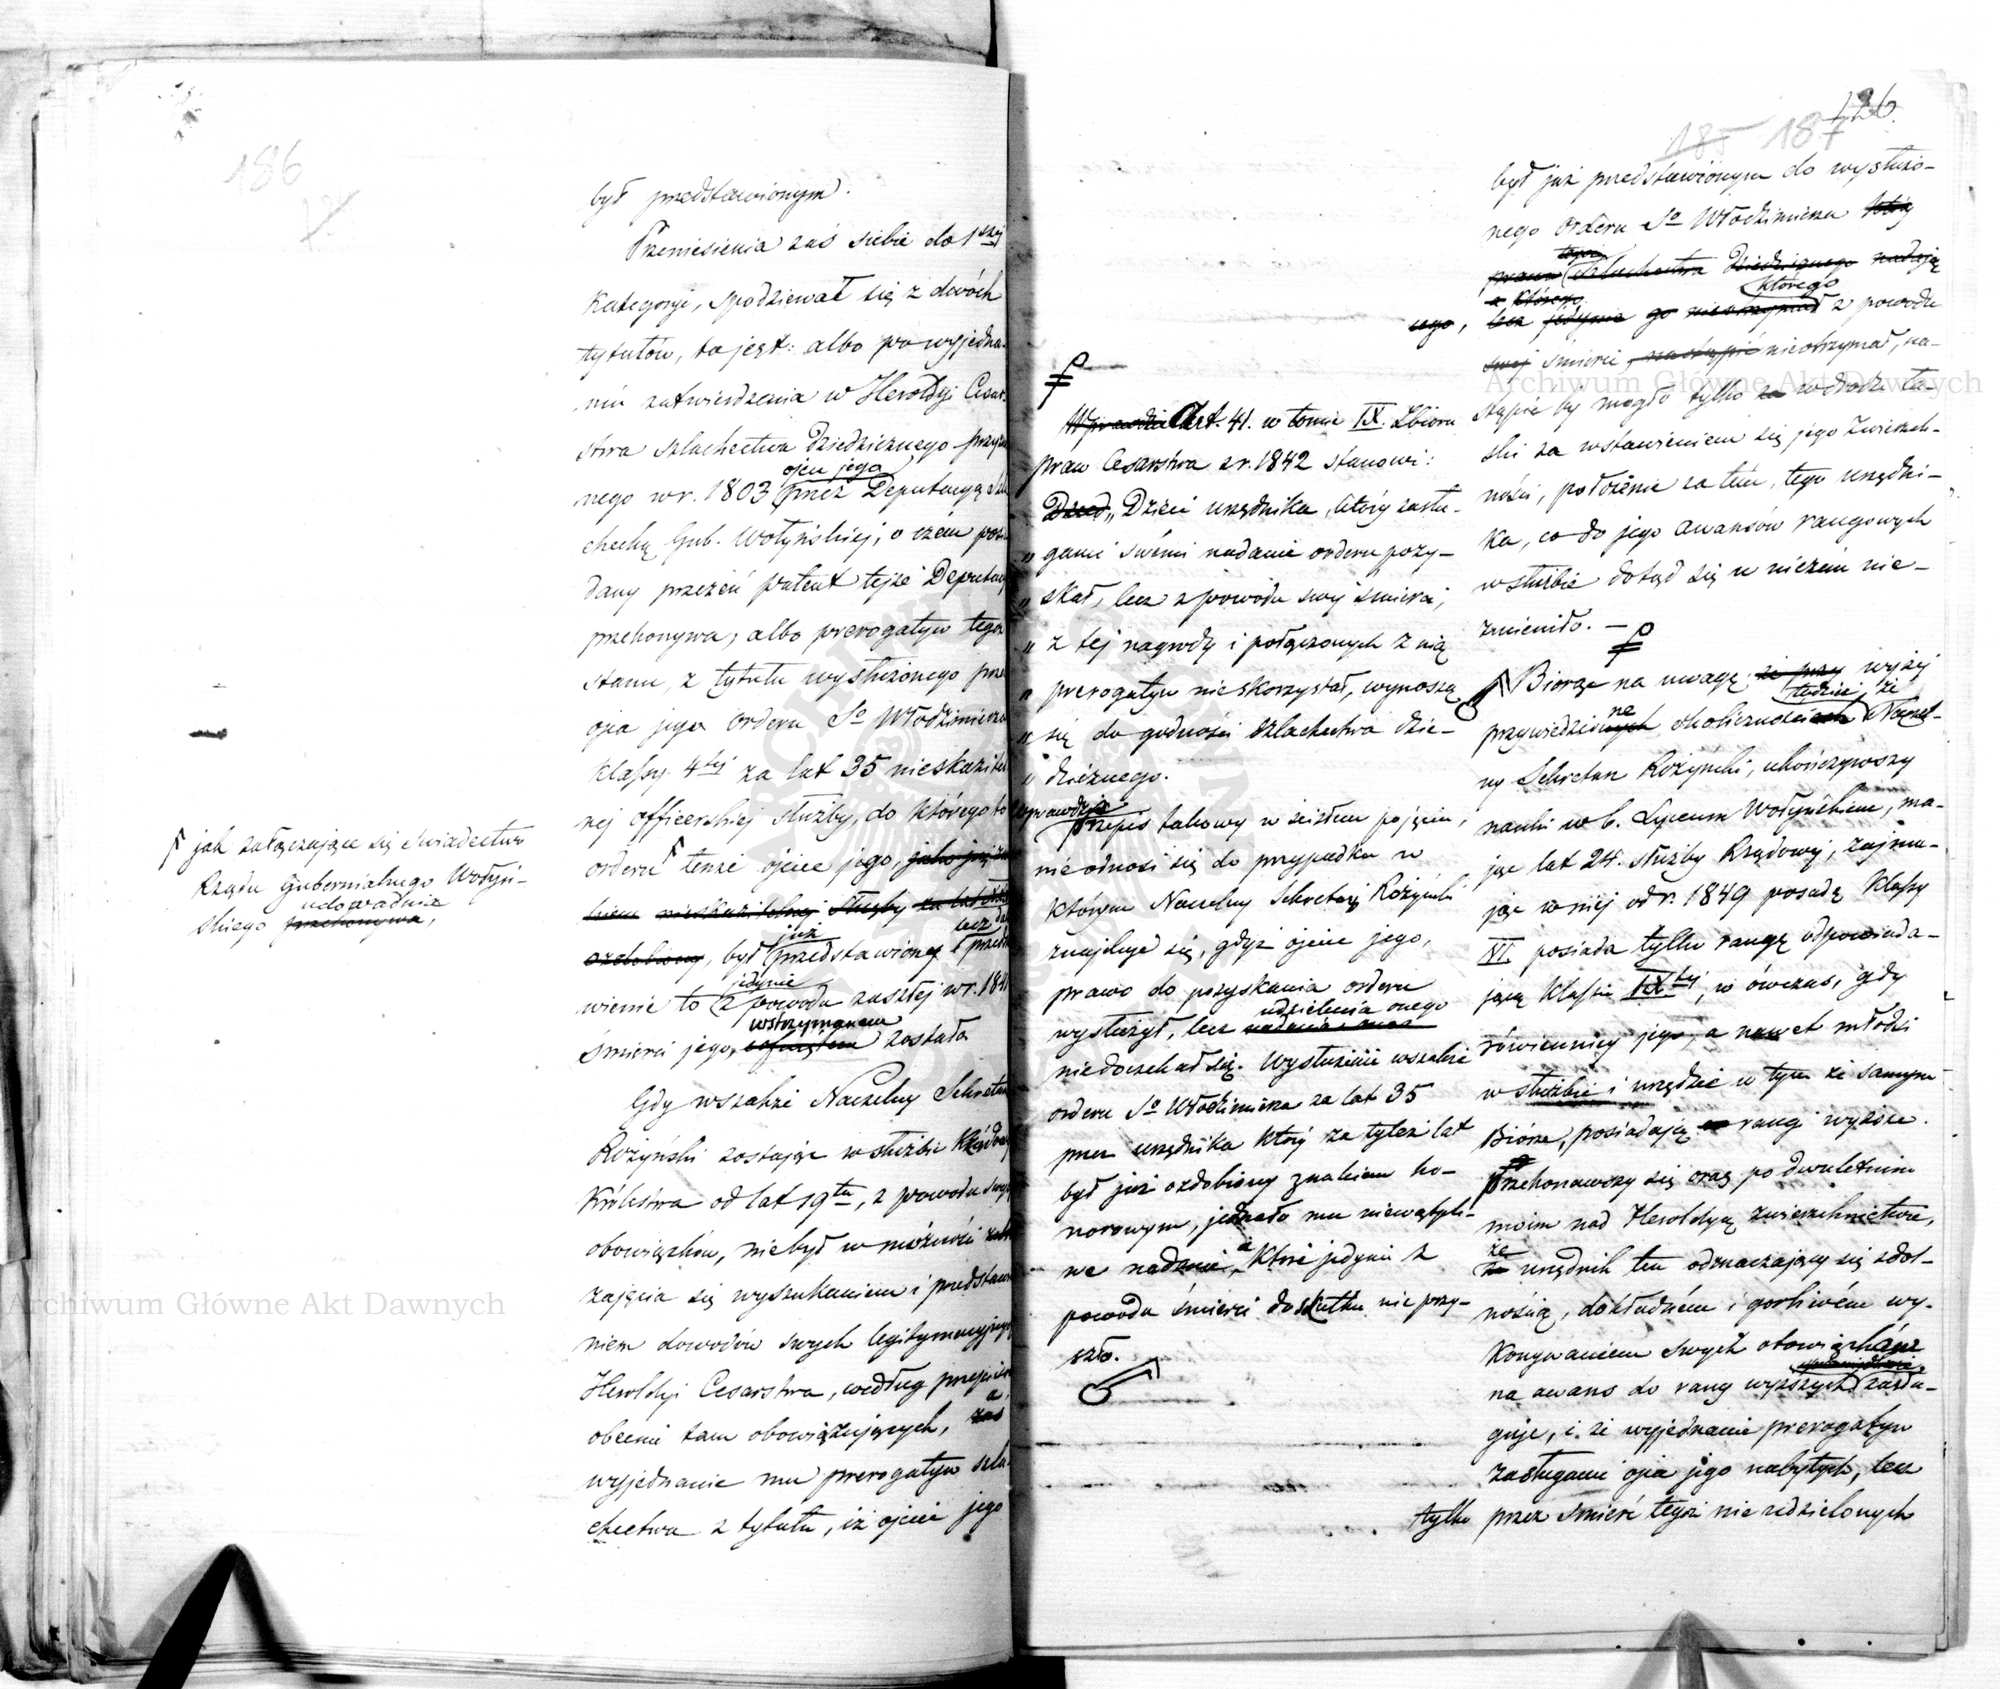 186
był przedstawionym.
Przeniesienia zaś siebie do 1szej
Kategoryi, spodziewał się z dwóch
tytułów, to jest: albo po wyjedna-
niu zatwierdzenia w Heroldyi Cesar-
stwa szlachectwa dziedzicznego przyzna
nego w r. 1803 ojcu jego przez Deputacyą Szla
checką Gub. Wołyńskiej, o czém posia
dany przezeń patent tejże Deputacyi
przekonywa; albo prerogatyw tegoż
stanu, z tytułu wysłużonego przez
ojca jego orderu So Włodzimierza
klassy 4tej za lat 35 nieskazitel
nej officerskiej służby, do którego to
orderu tenże ojciec jego, jako już za
lat
ozdobiony, był już przedstawiony lecz przedsta
wienie to jedynie z powodu zaszłej w r. 184
śmierci jego, wstrzymanem zostało
Gdy wszakże Naczelny Sekretarz
Różyński zostając w służbie Rządowej
Królestwa od lat 19tu, z powodu swych
obowiązków, nie był w możności
zajęcia się wyszukaniem i przedstawie
niem dowodów swych legitymacyjnych
Heroldyi Cesarstwa, według przepisów
obecnie tam obowiązujących, zaś a,
wyjednanie mu prerogatyw szla
chectwa z tytułu, iż ojciec jego
jak załączające się świadectwo
Rządu Gubernialnego Wołyń-
skiego udowadnia przekonywa,
126
185 187
Wprawdzie Art. 41. w tomie IX. Zbioru
praw Cesarstwa z r. 1842 stanowi:
Dzied „Dzieci urzędnika, który zasłu-
„gami swémi nadanie orderu pozy-
„skał, lecz z powodu swej śmierci,
„z tej nagrody i połączonych z nią
„prerogatyw nie skorzystał, wynoszą
„się do godności szlachectwa dzie-
„dzicznego.
wprawdzie
Przepis takowy w ścisłem pojęciu,
nie odnosi się do przypadku w
którym Naczelny Sekretarz Różyński
znajduje się, gdyż ojciec jego,
prawo do pozyskania orderu
wysłużył, lecz udzielenia onego
nie doczekał się. Wysłużenie wszakże
orderu So Włodzimierza za lat 35
przez urzędnika który za tyleż lat
był już ozdobiony znakiem ho-
norowym, jednało mu niewątpli-
we nadanie, a które jedynie z
powodu śmierci do skutku nie przy-
szło.
był już przedstawionym do wysłużo-
nego orderu So Włodzimierza który
prawa tegoż szlachectwa dziedzicznego nadają
a którego
ego, lecz jedynie go nieotrzymał którego z powodu
swej śmierci, nastąpić nieotrzymał, na-
stąpić by mogło tylko za w drodze ła-
ski za wstawieniem się jego Zwierzch-
ności, położenie zatém, tego urzędni-
ka, co do jego awansów rangowych
w służbie dotąd się w niczém nie-
zmieniło. —
Biorąc na uwagę że przy wyżej
przywiedzione okoliczności tudzież, że Naczel-
ny Sekretarz Różyński, ukończywszy
nauki w b. Lyceum Wołyńskiem, ma-
jąc lat 24. służby Rządowej, zajmu-
jąc w niej od r. 1849 posadę klassy
VI posiada tylko rangę odpowiada-
jącą klassie IXtej, w ówczas, gdy
rówiennicy jego, a nawet młodsi
w służbie i urzędzie w tym że samym
Biórze, posiadają rangi wyższe.
Przekonawszy się oraz po dwuletnim
moim nad Heroldyą zwierzchnictwie,
że urzędnik ten odznaczający się zdol-
nością, dokładném i gorliwém wy-
konywaniem swych obowiązków
na awans do rang wyższych zasłu-
guje, i że wyjednanie prerogatyw
zasługami ojca jego nabytych, lecz
tylko przez śmierć tegoż nie udzielonych
Archiwum Główne Akt Dawnych
Archiwum Główne Akt Dawnych